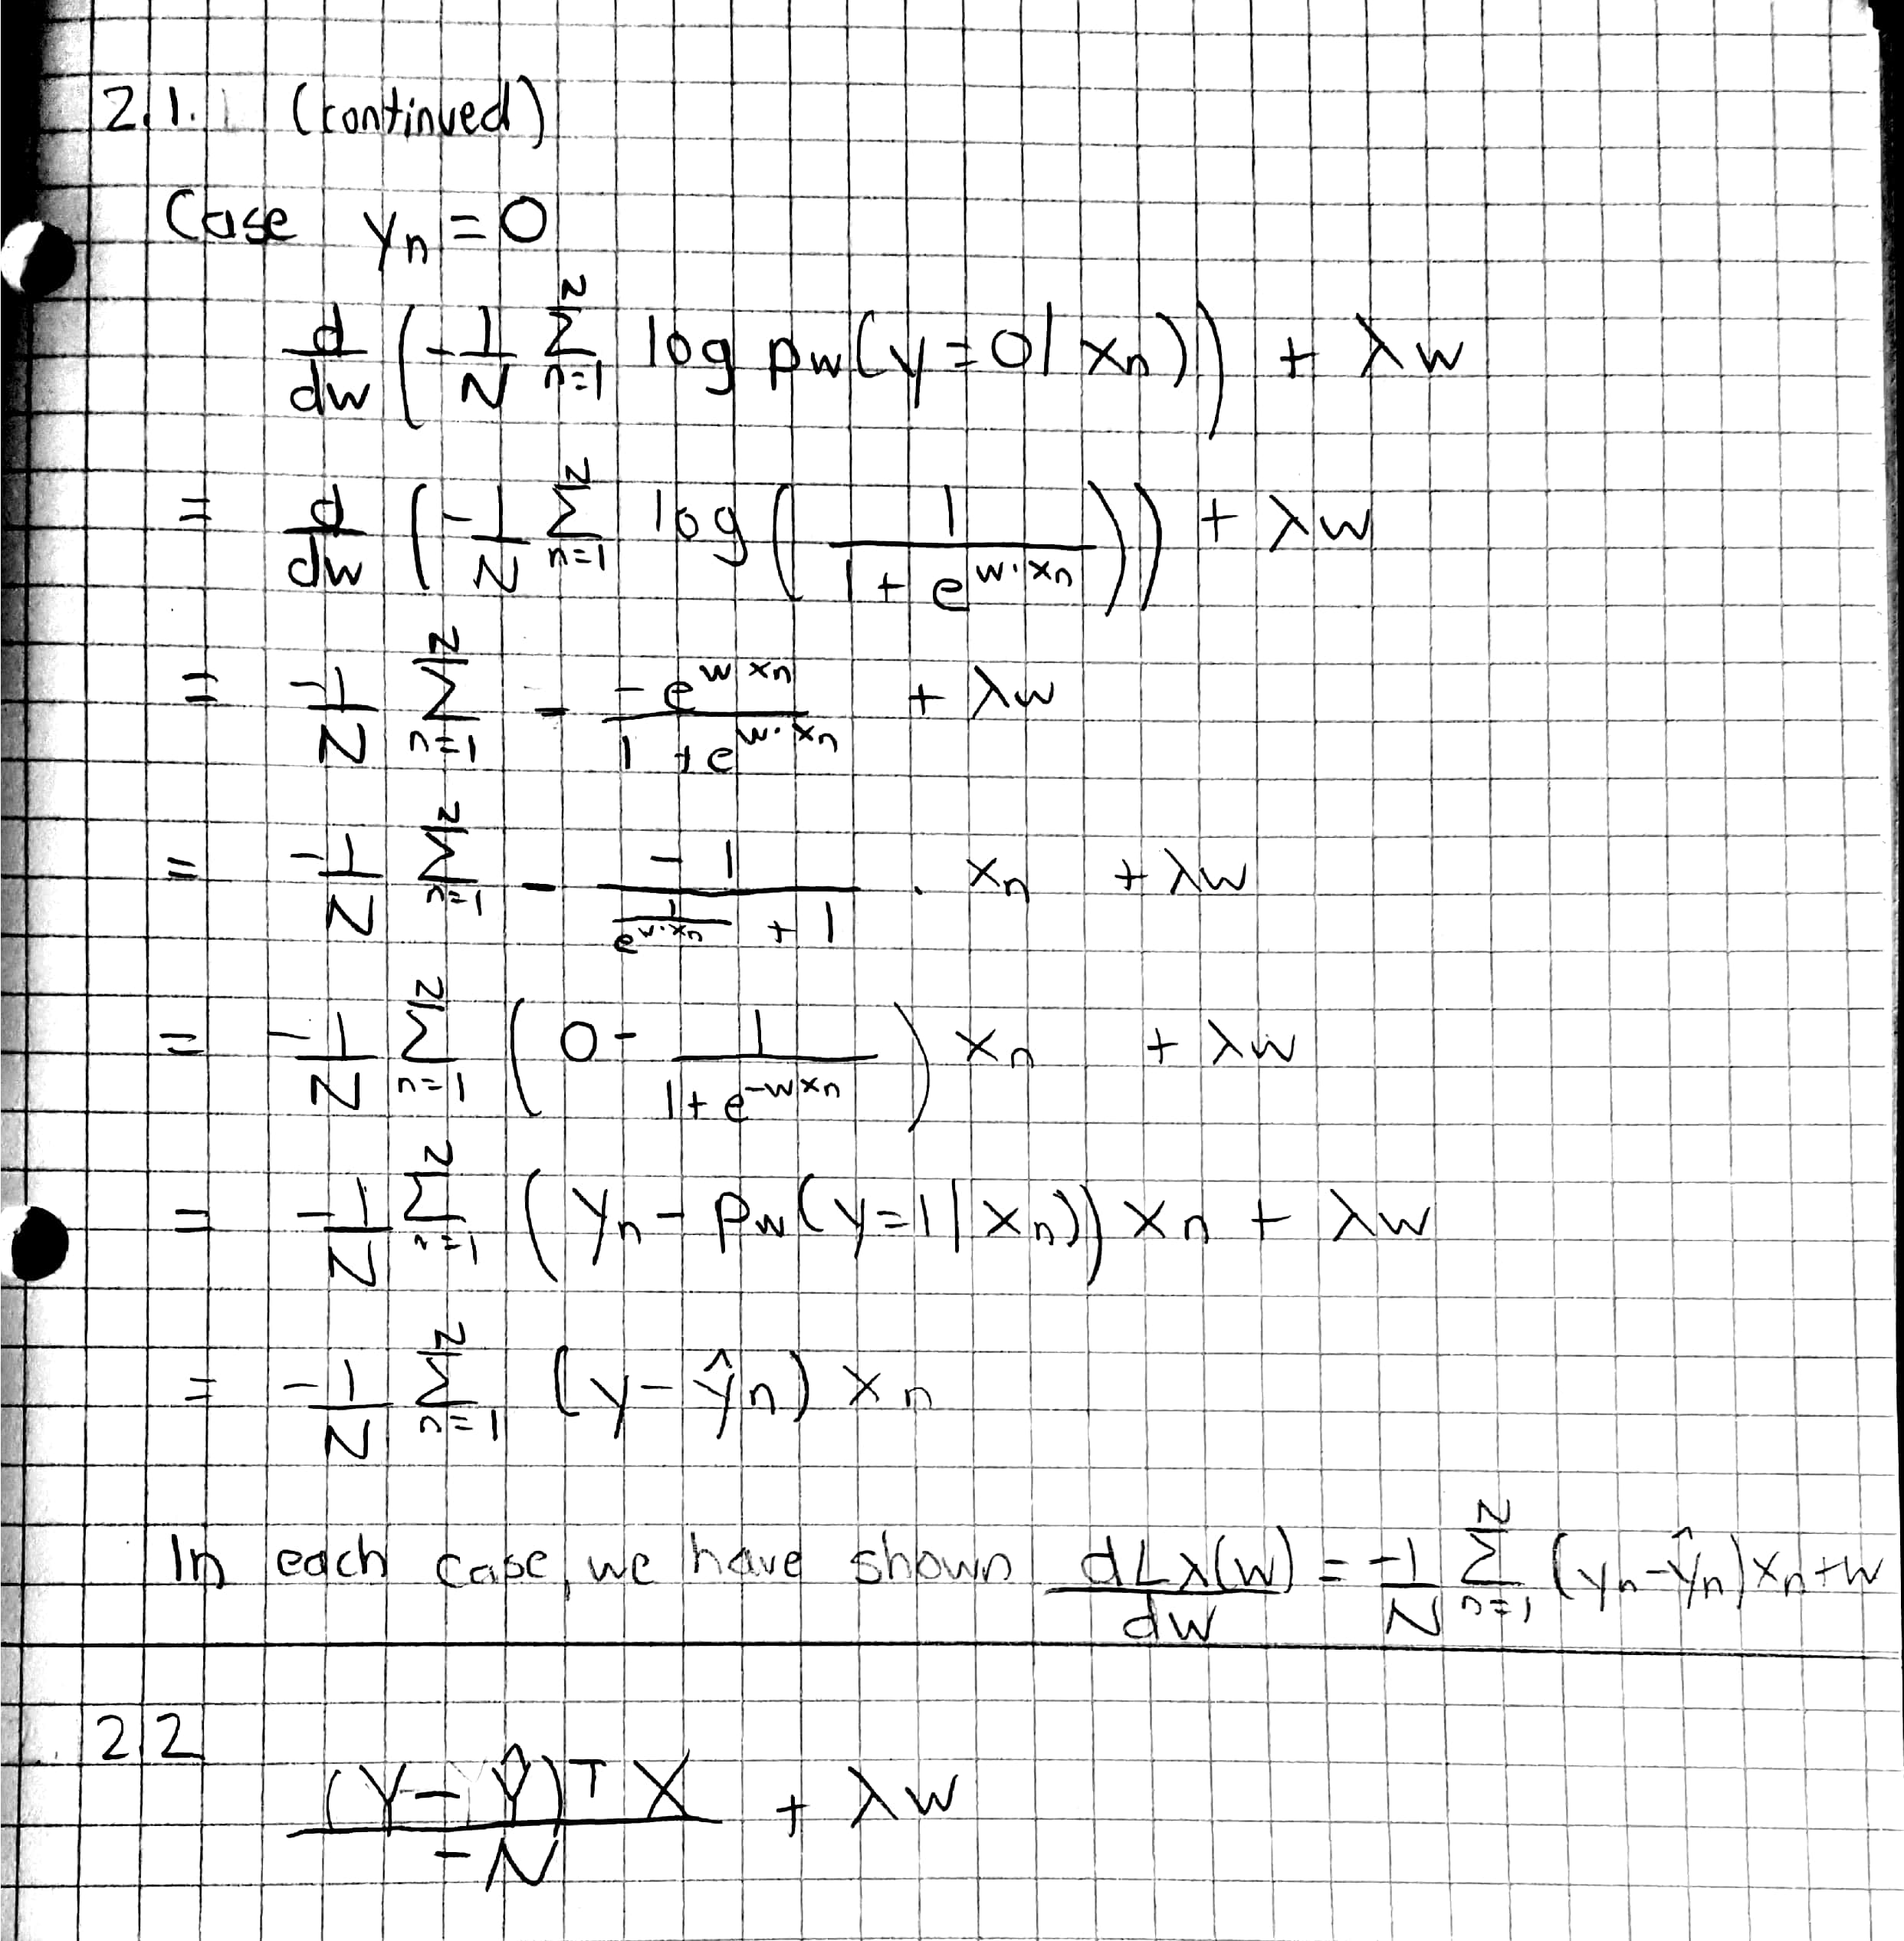 2.1. (continued)
Case yn = 0
d/dw (-1/N Σ_{n=1}^{N} log pw(y=0|xn)) + λw
= d/dw (-1/N Σ_{n=1}^{N} log(1/(1 + e^{w·xn}))) + λw
= -1/N Σ_{n=1}^{N} - (-e^{w xn})/(1 + e^{w·xn}) + λw
= -1/N Σ_{n=1}^{N} - (-1)/(1/e^{w·xn} + 1) · xn + λw
= -1/N Σ_{n=1}^{N} (0 - 1/(1 + e^{-w xn})) xn + λw
= -1/N Σ_{n=1}^{N} (yn - pw(y=1|xn)) xn + λw
= -1/N Σ_{n=1}^{N} (y - ŷn) xn
In each case, we have shown dLλ(w)/dw = -1/N Σ_{n=1}^{N} (yn - ŷn) xn + w
2.2
(Y - Ŷ)^T X / -N + λw